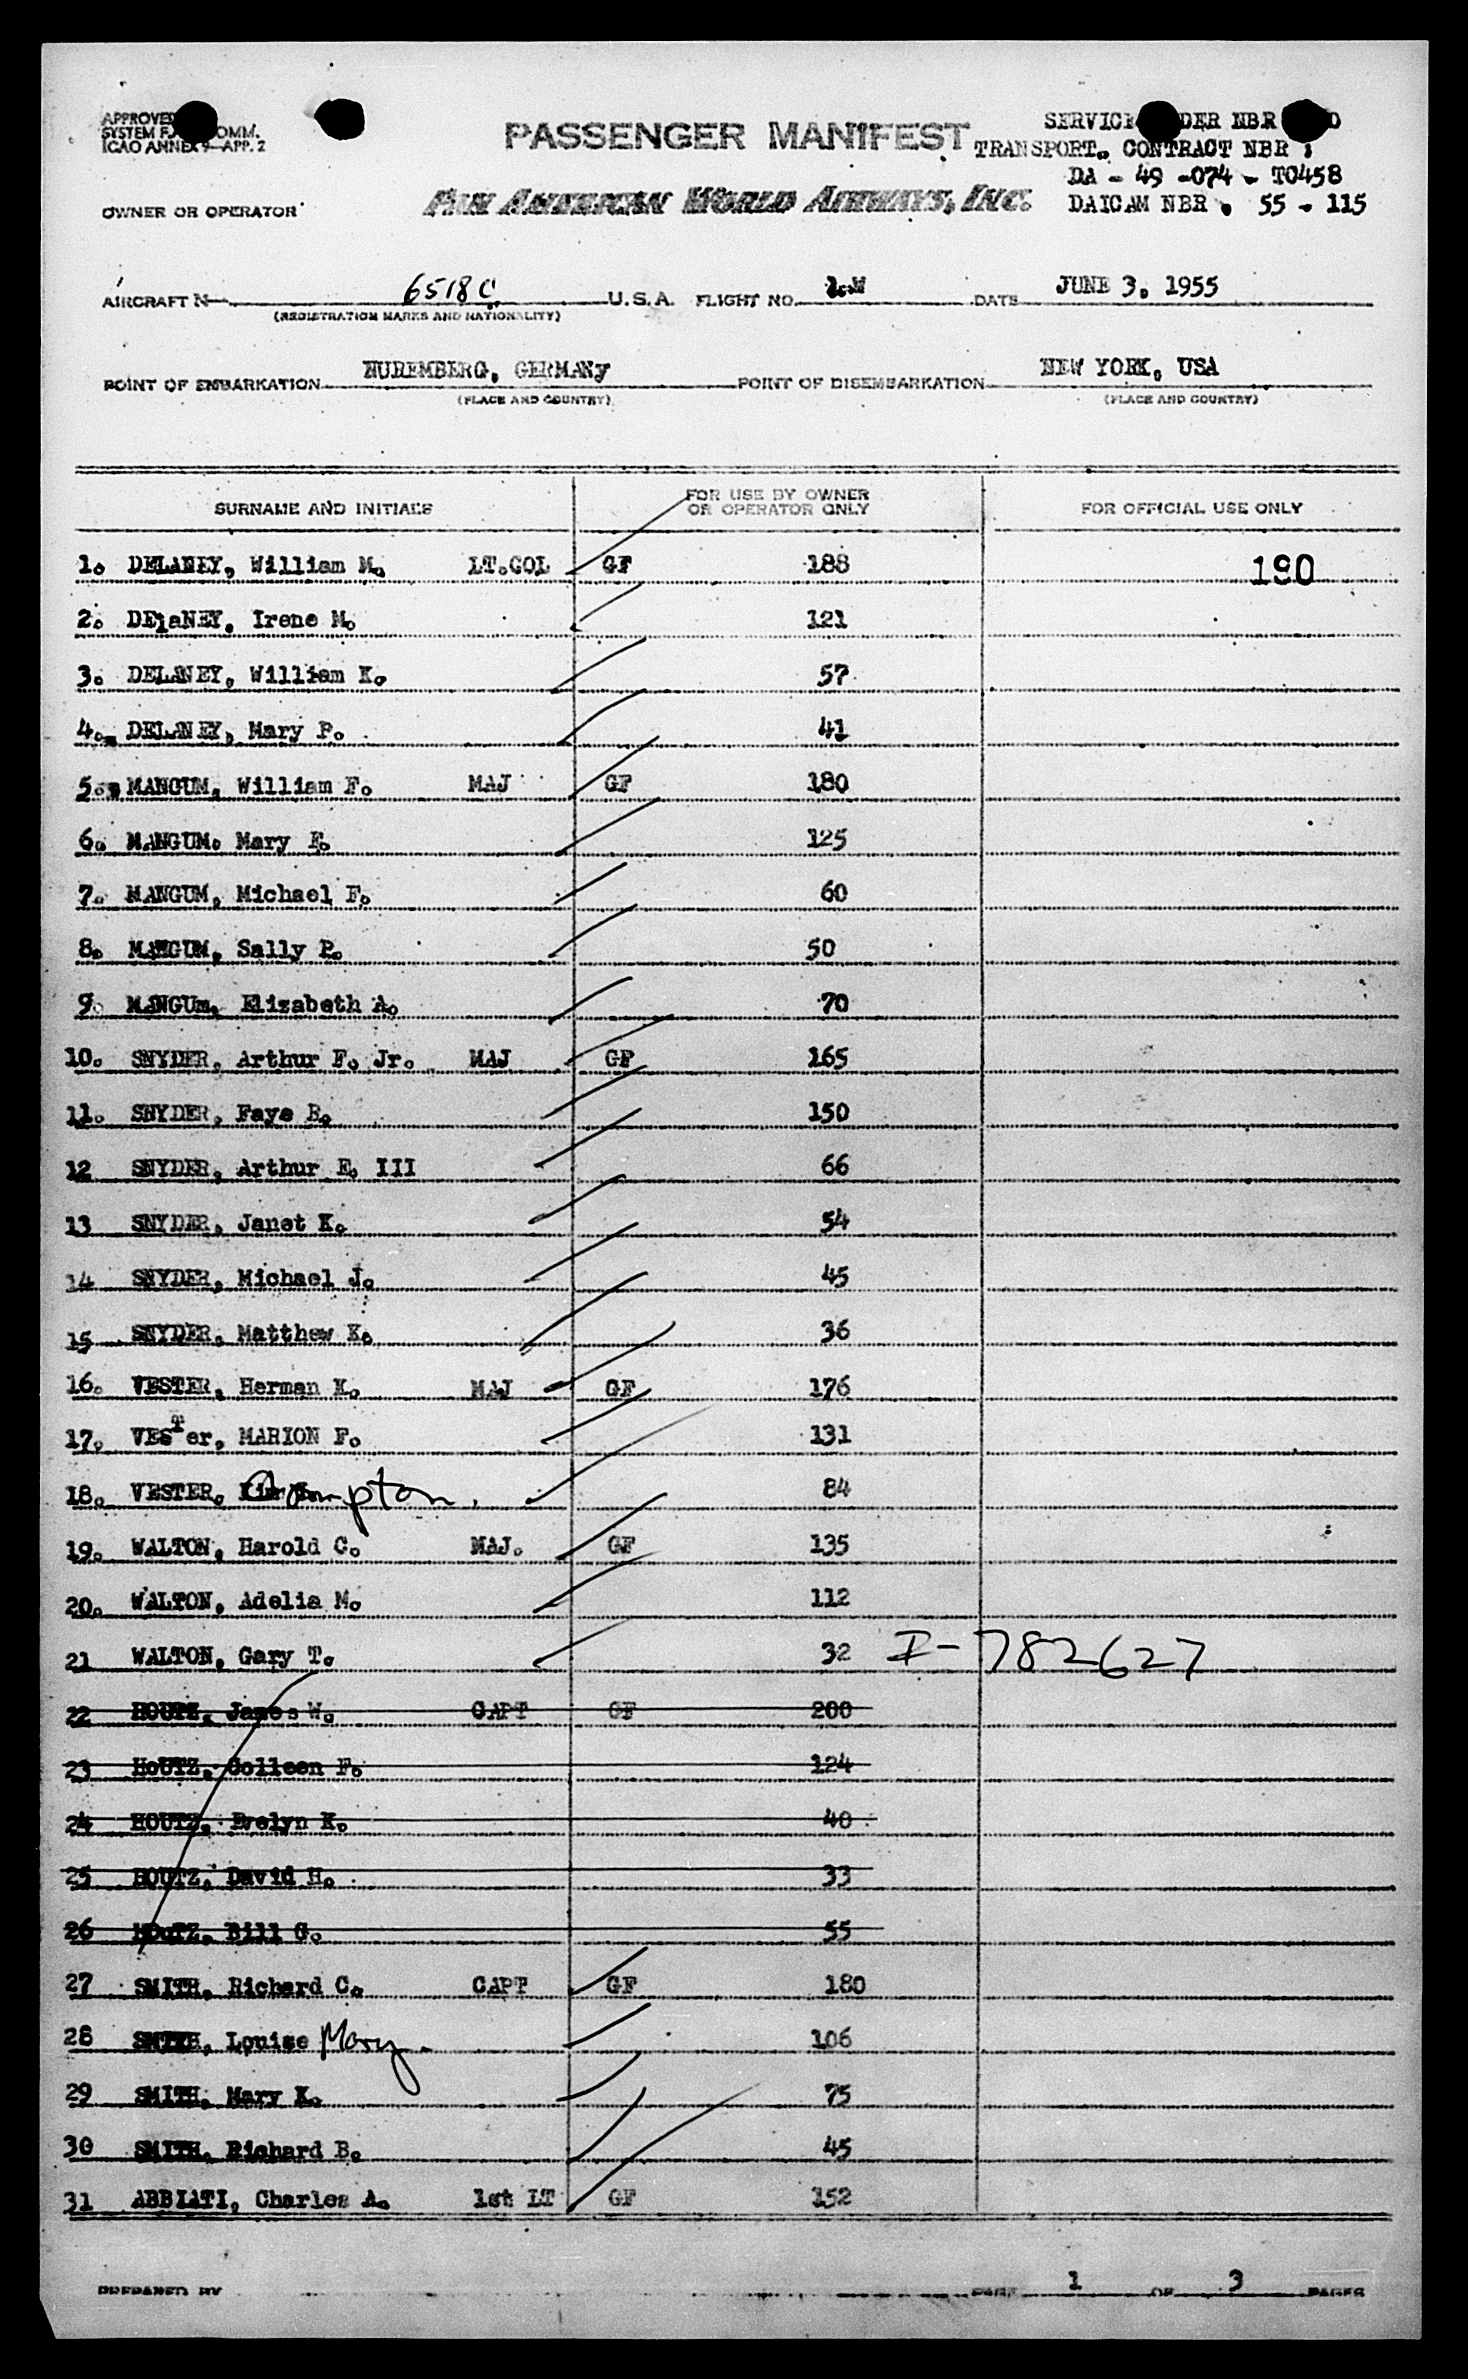 APPROVED
SYSTEM COMM.
ICAO ANNEX 9—APP. 2
PASSENGER MANIFEST
SERVICE ORDER NBR
TRANSPORT. CONTRACT NBR :
DA - 49 -074 - TO458
OWNER OR OPERATOR
PAN AMERICAN WORLD AIRWAYS, INC.
DAICAM NBR . 55 - 115
AIRCRAFT N— 6518C U.S.A. FLIGHT NO. DATE JUNE 3. 1955
(REGISTRATION MARKS AND NATIONALITY)
POINT OF EMBARKATION NUREMBERG, GERMANy POINT OF DISEMBARKATION NEW YORK, USA
(PLACE AND COUNTRY) (PLACE AND COUNTRY)
SURNAME AND INITIALS FOR USE BY OWNER OR OPERATOR ONLY FOR OFFICIAL USE ONLY
1. DELANEY, William M. LT.COL GF 188 190
2. DElaNEY, Irene M. 121
3. DELANEY, William K. 57
4. DELANEY, Mary P. 41
5. MANGUM, William F. MAJ GF 180
6. MANGUM. Mary E. 125
7. MANGUM, Michael F. 60
8. MANGUM, Sally P. 50
9. MANGUm, Elizabeth A. 70
10. SNYDER, Arthur F. Jr. MAJ GF 165
11. SNYDER, Faye B. 150
12 SNYDER, Arthur E. III 66
13 SNYDER, Janet K. 54
14 SNYDER, Michael J. 45
15 SNYDER, Matthew K. 36
16. VESTER, Herman K. MAJ GF 176
17. VESTer, MARION F. 131
18. VESTER. Compton. 84
19. WALTON, Harold C. MAJ. GF 135
20. WALTON, Adelia M. 112
21 WALTON, Gary T. 32 I-782627
22 HOUTZ, James W. CAPT GF 200
23 HoUTZ, Colleen F. 124
24 HOUTZ, Evelyn K. 40
25 HOUTZ, David H. 33
26 HOuTZ, Bill G. 55
27 SMITH, Richard C. CAPT GF 180
28 SMITH, Louise Mary. 106
29 SMITH, Mary K. 75
30 SMITH, Richard B. 45
31 ABBIATI, Charles A. 1st LT GF 152
PREPARED BY PAGE 1 OF 3 PAGES